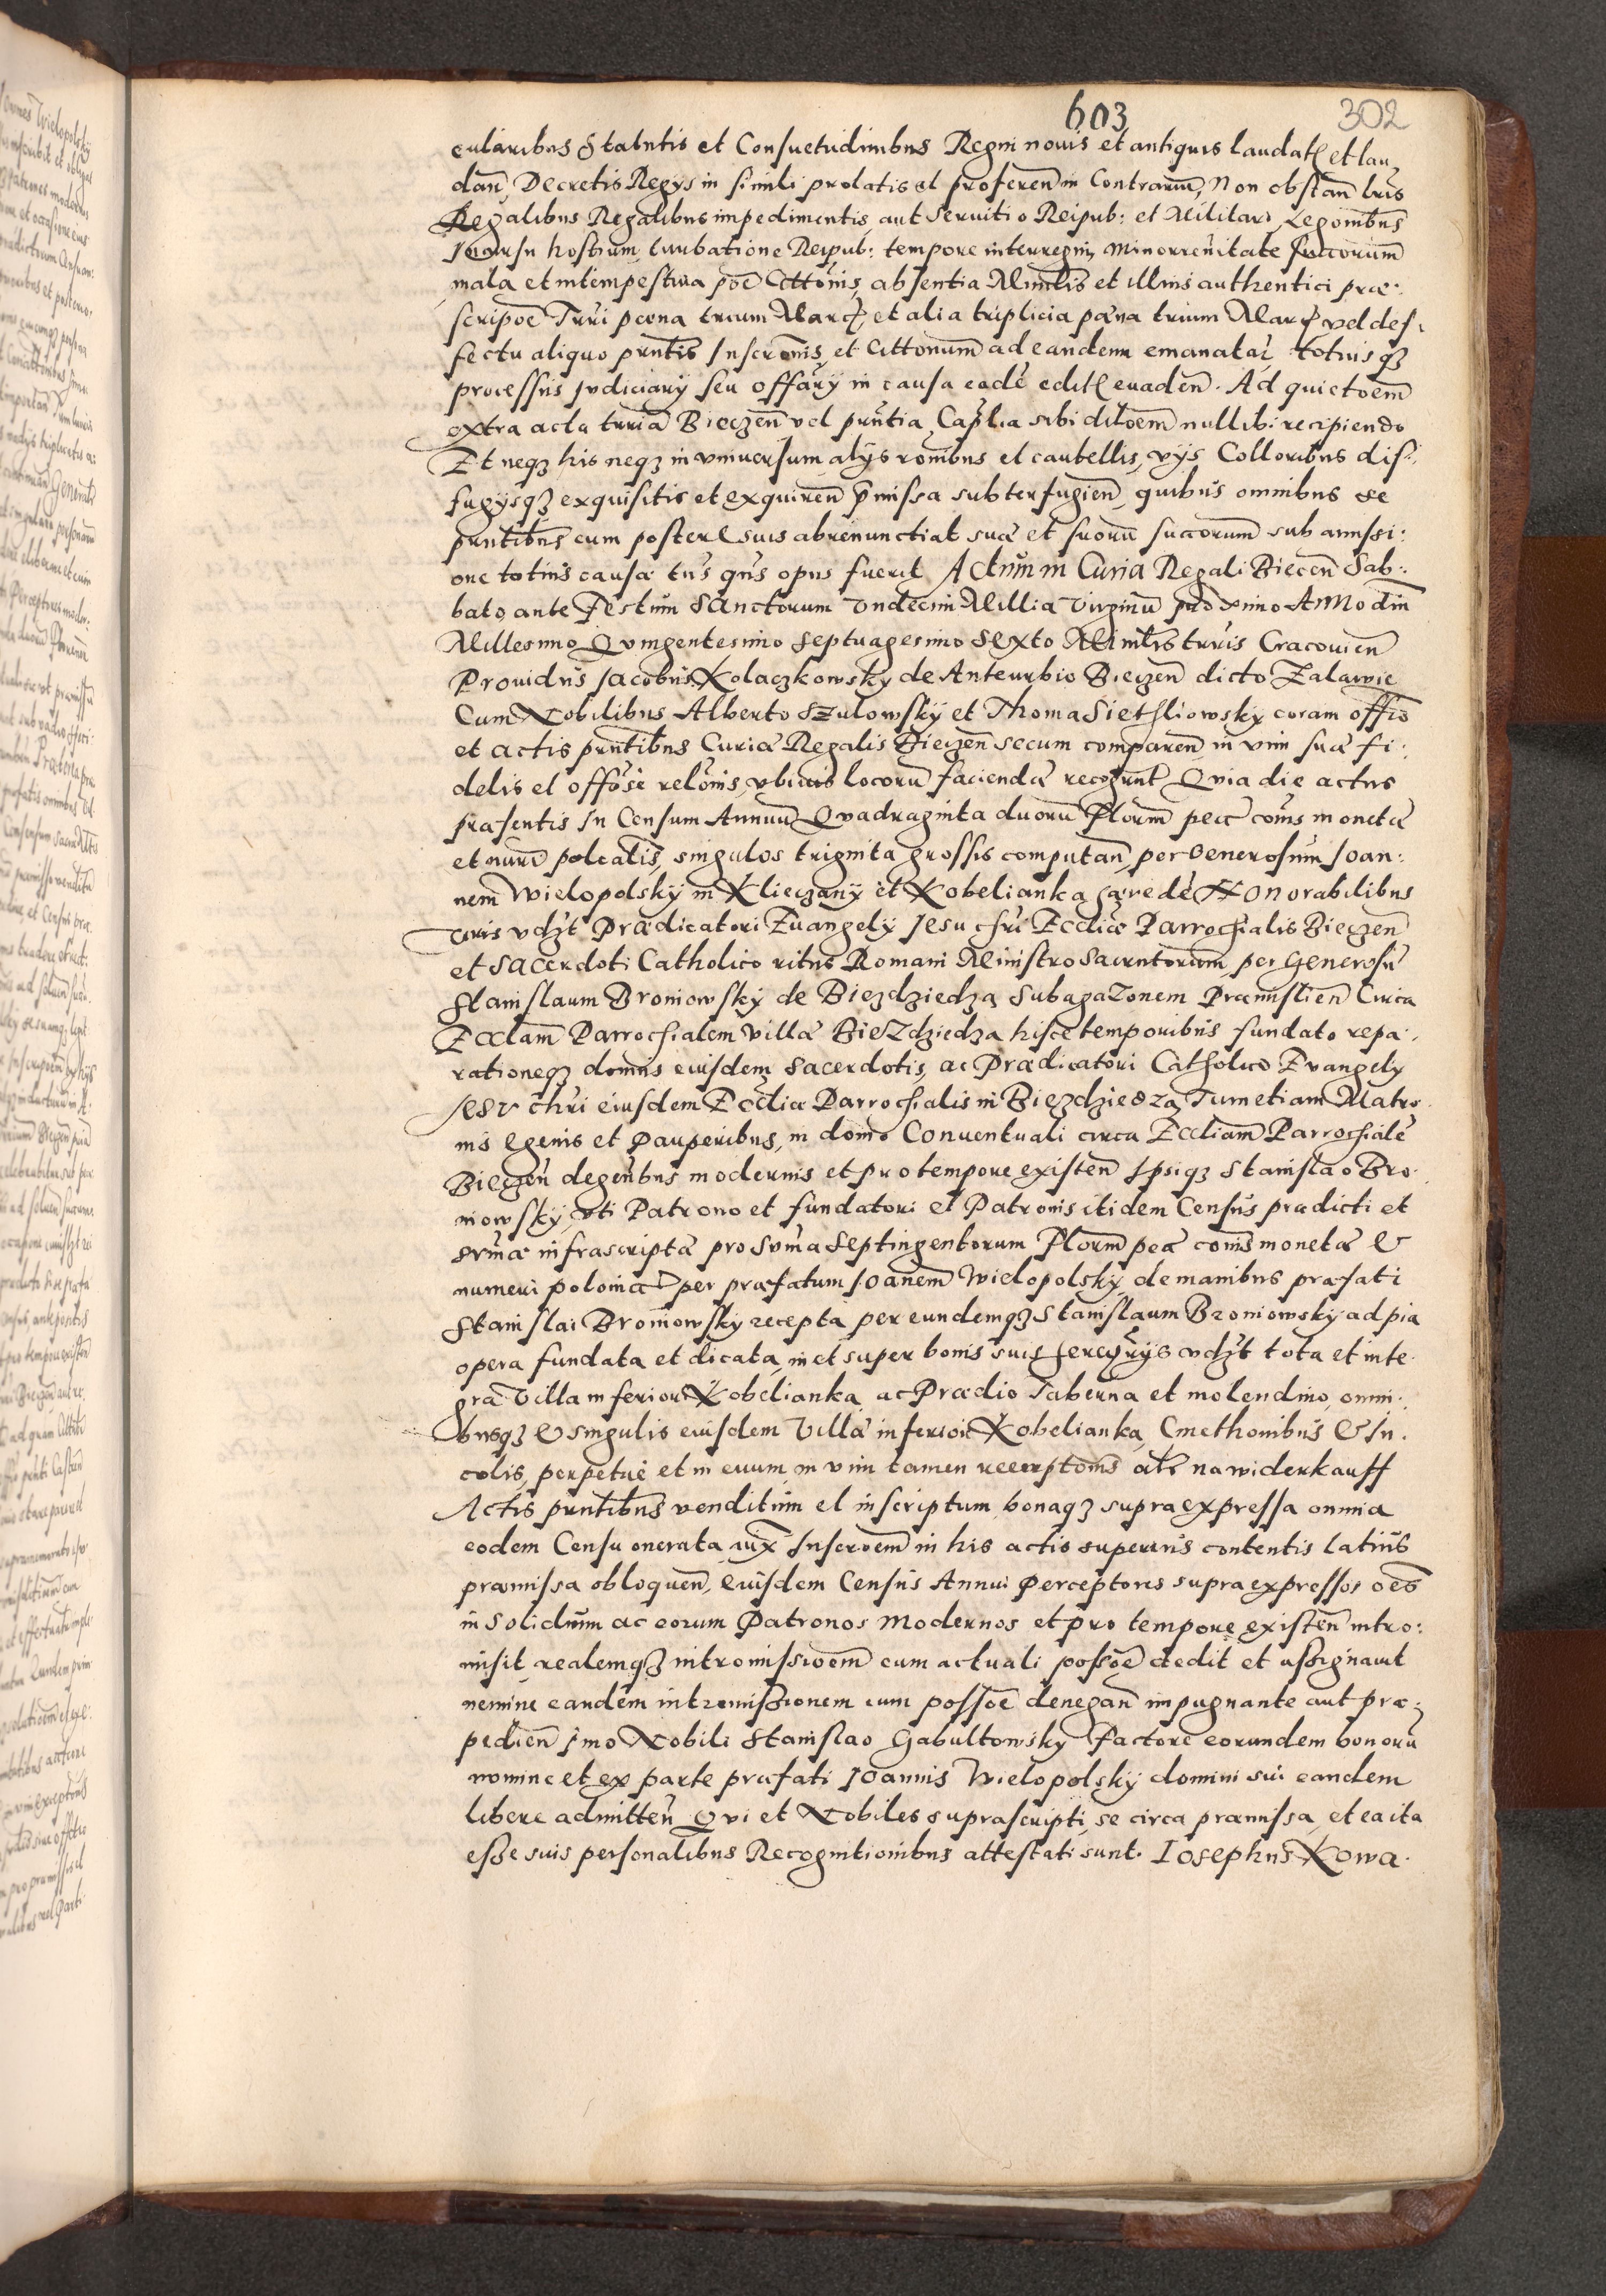 603 302
cularibus Statutis et Consuetudinibus Regni nouis et antiquis laudat et lau
dan, Decretis Regys in simili prolatis et proferen in Contrarium, Non obstan lris
Regalibus Regalibus impedimentis, aut Seruitio Reipub: et Militari Legonibus
Incursu hostium, turbatione Reipub: tempore interregni, Minorrenitate succorum
mala et intempestiua poe Cittonis, absentia Minitlis et illius authentici præ:
scripoe Turri pæna trium Marc, et alia triplicia pæna trium Marc vel def:
fectu aliquo pntis Inscronis, et Cittonum ad eandem emanatar totiusqz
processus judiciary seu offary in causa eade edit euaden. Ad quietoem
extra acta terria Bieczen vel pntia Caplia sibi ditoem nullibi recipiendo
Et neqz his neqz in vniuersum alys ronibus et cautellis, vys Colloribus dif:
fugysqz exquisitis et exquiren pmissa subterfugien, quibus omnibus se
pntibus cum poster suis abrenunctiat suæ et suoru succorum sub amissi:
one totius causæ tus qus opus fuerit Actum in Curia Regali Biecen Sab:
bato ante Festum Sanctorum Vndecim Millia Virginu proximo Anno din
Millesimo Quingentesimo Septuagesimo Sexto Minitris turis Cracouien
Prouidus Jacobus Kolaczkowsky de Anteurbio Bieczen dicto Zalawie
Cum Nobilibus Alberto Szulowsky et Thoma Siethliowsky coram offio
et actis pntibus Curiæ Regalis Bieczen secum comparen in vim suæ fi:
delis et offosæ relonis, vbiuis locoru faciendæ recognt Quia die actus
præsentis In Censum Annuu Quadraginta duoru Florum pecæ comis monetæ
et numi polcalis, singulos triginta grossis computan, per Generosum Joan:
nem Wielopolsky in Klieczany et Kobelianka hærede Honorabilibus
viris vdzt Prædicatori Euangely Jesu chri Ecdiæ Parrochialis Bieczen
et Sacerdoti Catholico ritus Romani Ministro Sacrntorum, per Generosu
Stanislaum Broniowsky de Biezdziedza Subagazonem Præmislien Circa
Ecclam Parrochialem villæ Biezdziedza hisce temporibus fundato repa:
rationeqz domus eiusdem Sacerdotis, ac Prædicatori Catholico Euangely
Jesu chri eiusdem Ecdiæ Parrochialis in Biezdziedza Tum etiam Matro
nis egenis et Pauperibus, in domo Conuentuali circa Eccliam Parrochiale
Bieczen degentbus modernis et pro tempore existen Ipsiqz Stanislao Bro
niowsky vti Patrono et fundatori et Patronis itidem Census prædicti et
summæ infrascriptæ pro Suma Septingentorum Florum pecæ comis monetæ &
numeri polonica per præfatum Joanem Wielopolsky, de manibus præfati
Stanislai Broniowsky recepta per eundemqz Stanislaum Broniowsky ad pia
opera fundata et dicata, in et super bonis suis heredrys vdzt tota et inte
gra Villa inferiori Kobelianka ac Prædio Taberna et molendino, omni:
busqz & singulis eiusdem Villæ inferioris Kobelianka, Cmethonibus & In.
colis, perpetue et in euum in vim tamen reemptonis als na widerkauff
Actis pntibus venditum et inscriptum, bonaqz supra expressa omnia
eodem Censu onerata iux Inscroem in his actis superius contentis latius
præmissa obloquen, eiusdem Census Annui Perceptores supra expressos oes
in Solidum ac eorum Patronos Modernos et pro tempore existen intro:
misit, realemqz intromissioem cum actuali possoe dedit et assignauit
nemine eandem intromissionem cum possoe denegan impugnante aut præ:
pedien imo Nobili Stanislao Gabultowsky Factore eorundem bonoru
nomine et ex parte præfati Ioannis Wielopolsky domini sui eandem
libere admitten Qui et Nobiles suprascripti, se circa præmissa, et ea ita
esse suis personalibus Recognitionibus attestati sunt. Iosephus Kowa.